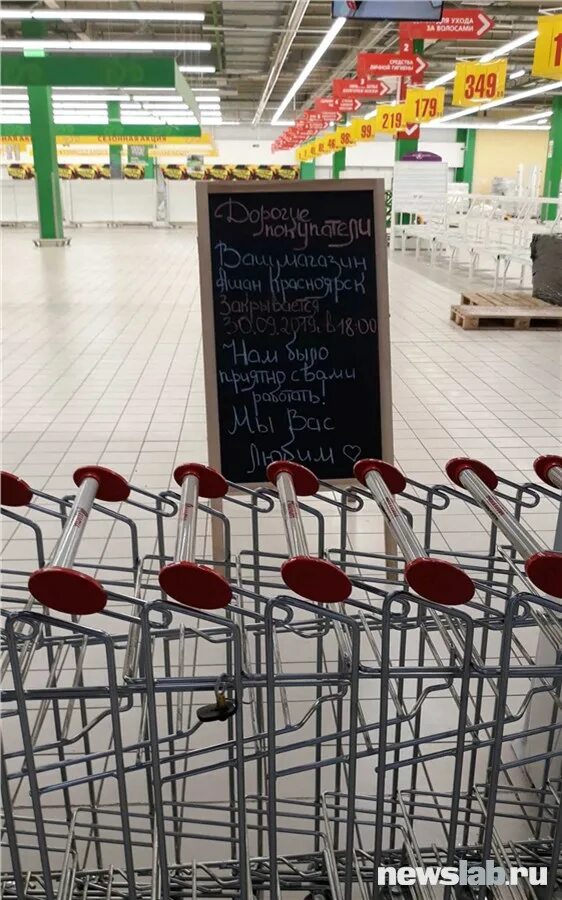 ДЛЯ УХОДА
ЗА ВОЛОСАМИ
СРЕДСТВА
ЛИЧНОЙ ГИГИЕНЫ
349
179
219
99
98
СЕЗОННАЯ АКЦИЯ
Дорогие
покупатели
Ваш магазин
Ашан Красноярск
Закрывается
30.09.2019г. в 18:00
Нам было
приятно с вами
работать!
Мы Вас
Любим ♡
newslab.ru